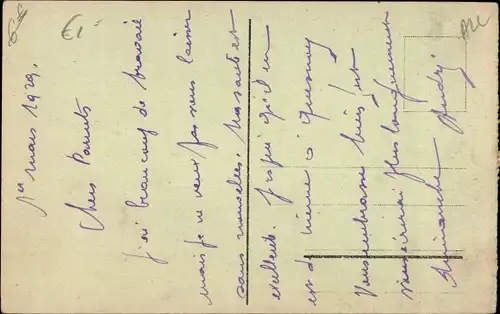 1er mars 1929.
Chers Parents
j'ai beaucoup de travail
mais je ne veux pas vous laisser
sans nouvelles. Ma santé est
excellente. J'espère qu'il en
est de même à Quesnoy
Vous embrasse bien fort
vous écrirai plus longuement
dimanche André